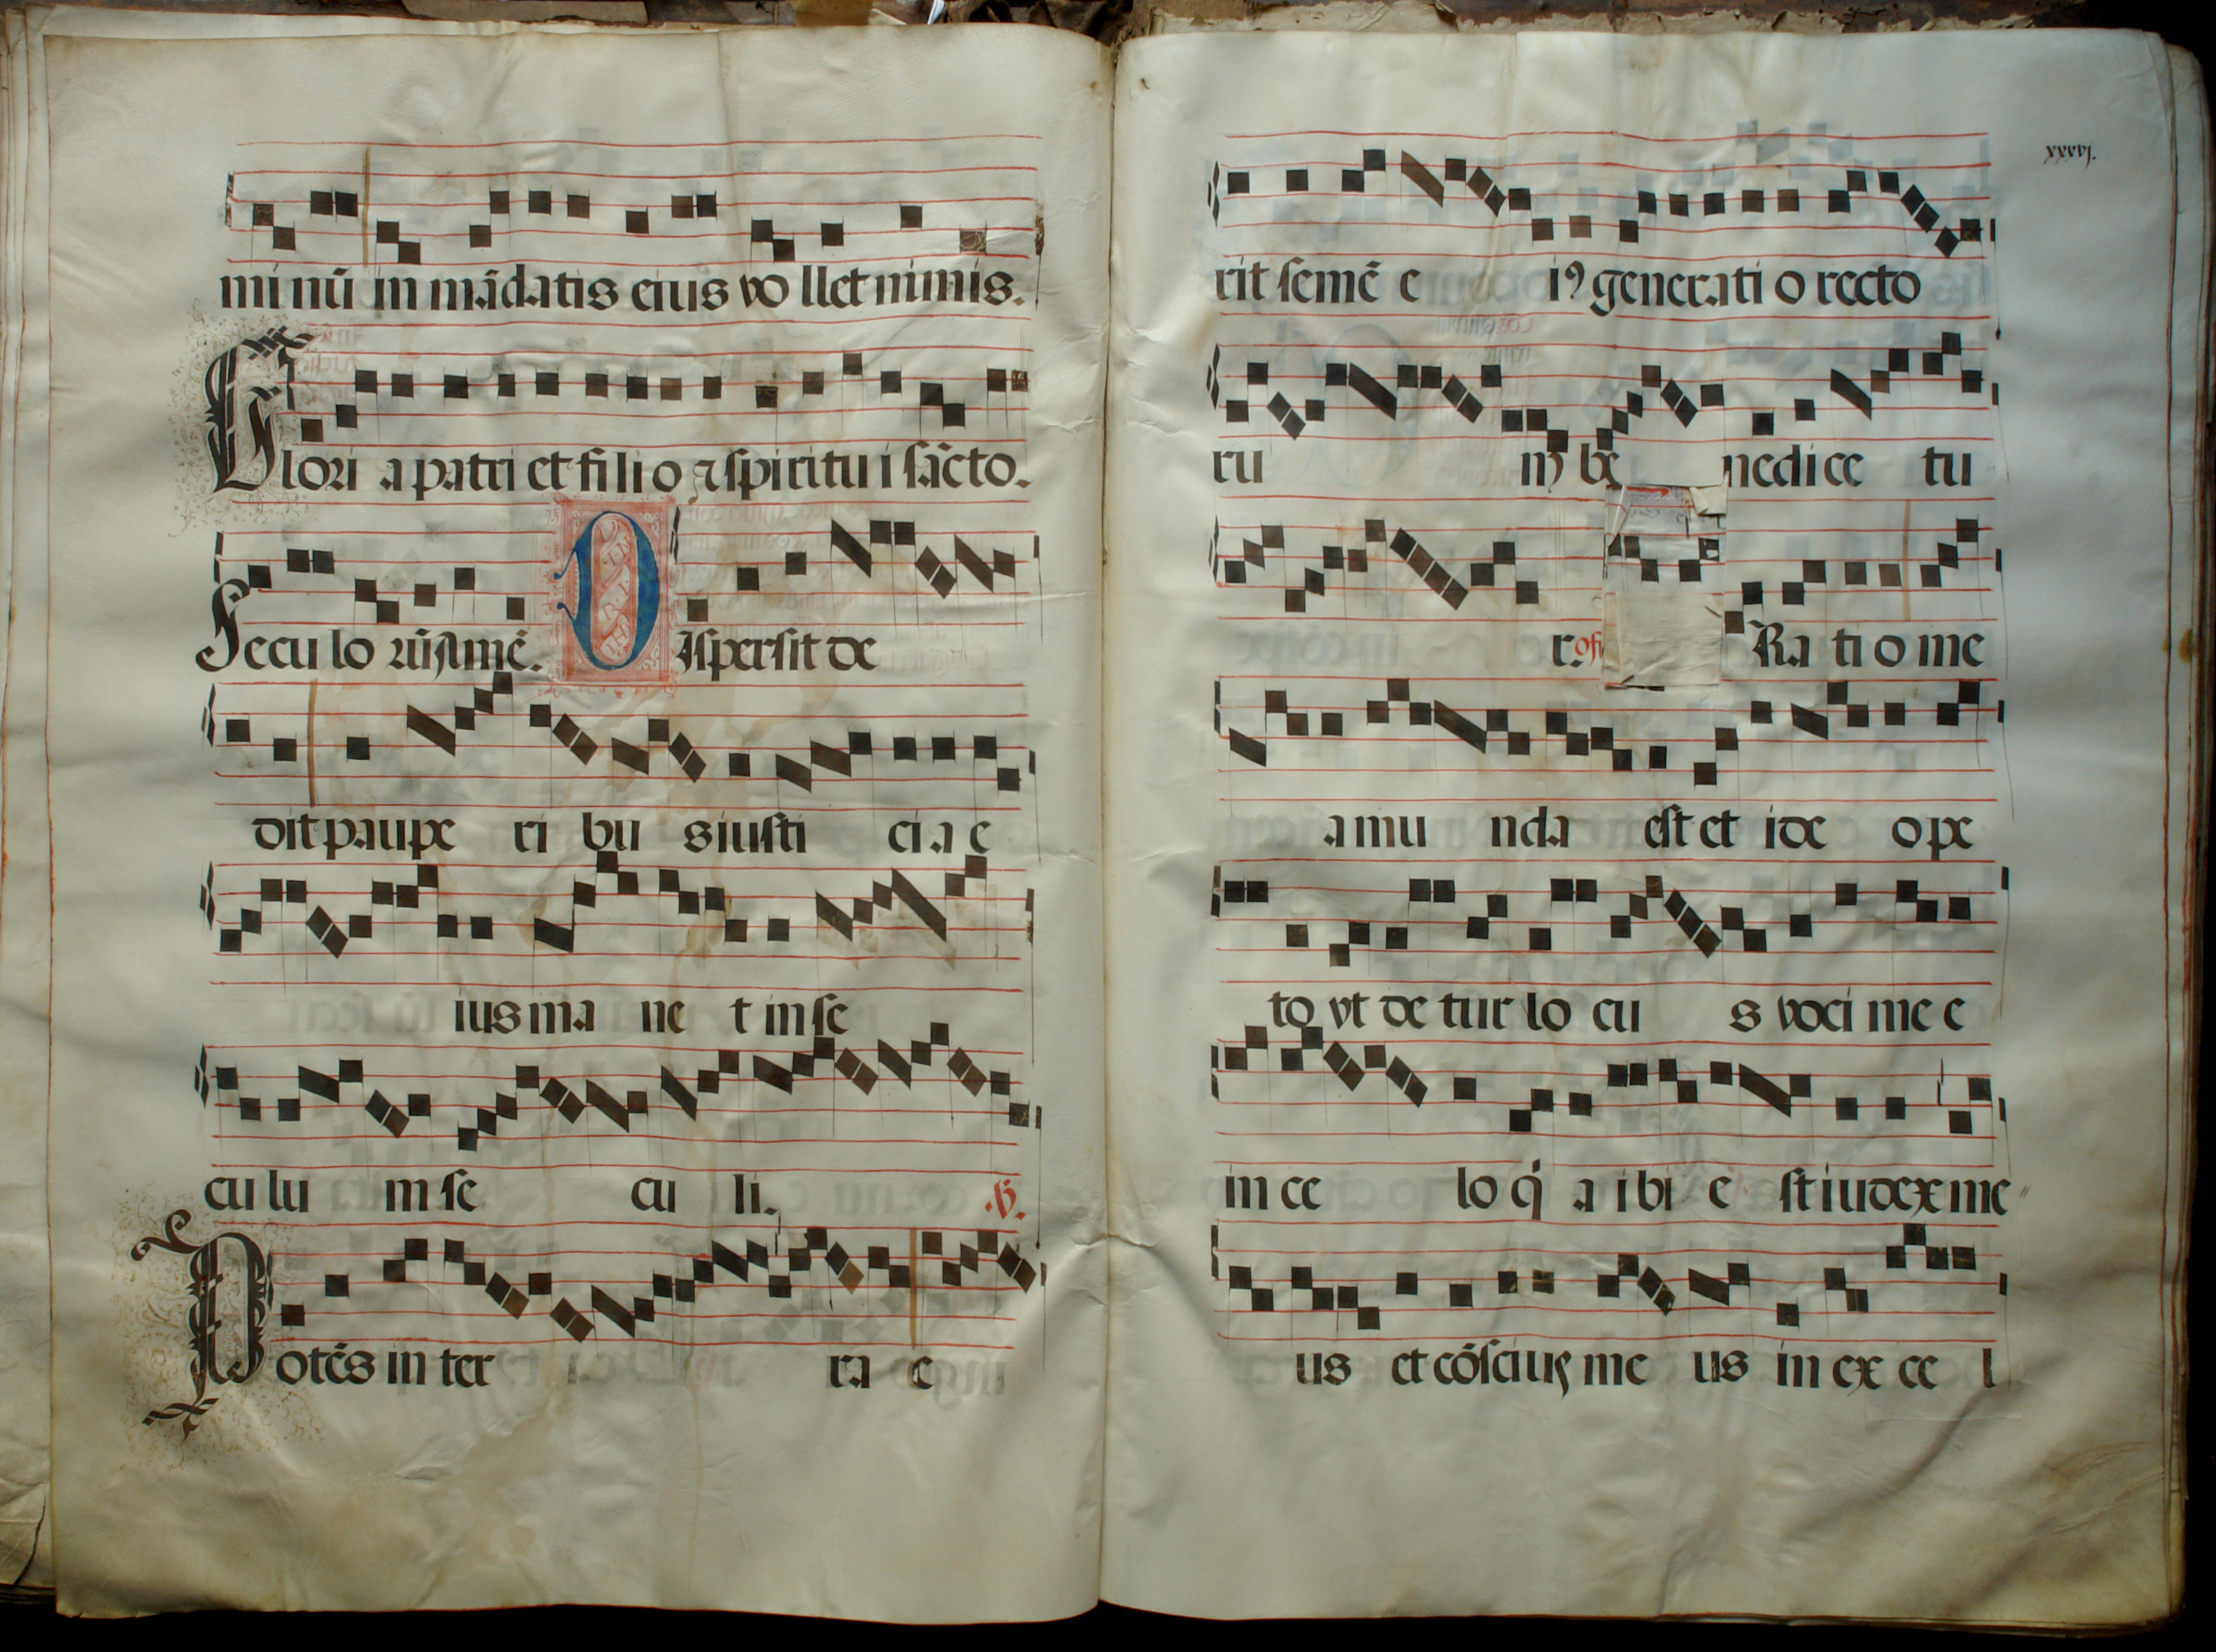 mi nū in mādatis eius vo llet nimis.
Glori a patri et fi li o ⁊ spiritu i sācto.
Secu lo rū amē. Dispersit de
dit paupe ri bu s iusti ci a e
ius ma ne t in se
cu lu m se cu li. .℣.
Potēs in ter ra e
xxxvj.
rit semē e iꝰ generati o recto
ru m be nedi ce tu
r. of Ra ti o me
a mu nda est et ide o pe
to vt de tur lo cu s voci me e
in ce lo q̇ a i bi e st iudex me
us et cōscius me us in ex ce l